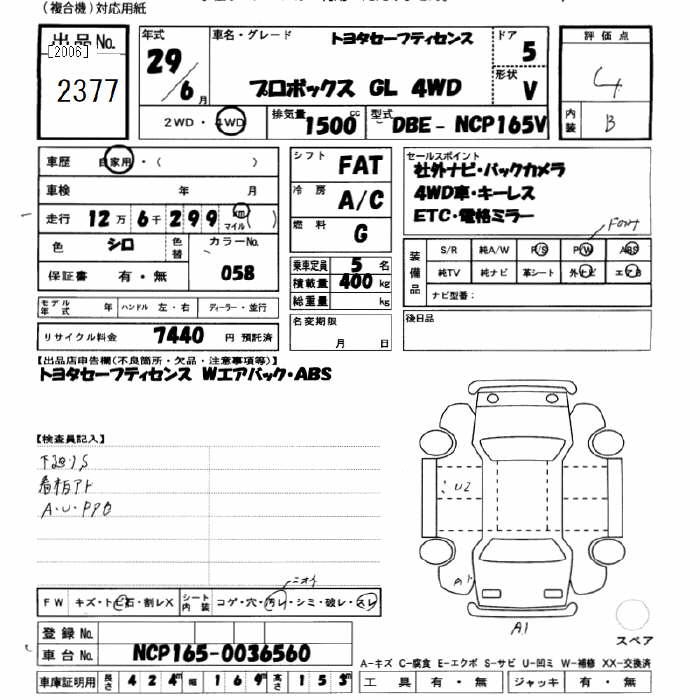 (複合機)対応用紙
出品No.
[2006]
2377
年式
29/6月
車名・グレード
トヨタセーフティセンス
プロボックス GL 4WD
ドア
5
形状
V
2WD・4WD
排気量
1500cc
型式
DBE-NCP165V
評価点
4
内装
B
車歴 自家用・( )
車検 年 月
走行 12万6千299 km マイル ( )
色 シロ 色替 カラーNo. 058
保証書 有・無
モデル年式 年 ハンドル 左・右 ディーラー・並行
リサイクル料金 7440 円 預託済
シフト FAT
冷房 A/C
燃料 G
乗車定員 5 名
積載量 400 kg
総重量 kg
名変期限
月 日
セールスポイント
社外ナビ・バックカメラ
4WD車・キーレス
ETC・電格ミラー
Font
装備品 S/R 純A/W P/S P/W ABS
純TV 純ナビ 革シート 外ナビ エアB
ナビ型番:
後日品
【出品店申告欄(不良箇所・欠品・注意事項等)】
トヨタセーフティセンス Wエアバック・ABS
【検査員記入】
下廻りS
看板アト
A・U・PPO
U2
A1
A1
スペア
ニオイ
FW キズ・トビ石・割レX シート内装 コゲ・穴・汚レ・シミ・破レ・スレ
登録No.
車台No. NCP165-0036560
A-キズ C-腐食 E-エクボ S-サビ U-凹ミ W-補修 XX-交換済
車庫証明用 長さ 424 幅 169 高さ 153
工具 有・無 ジャッキ 有・無